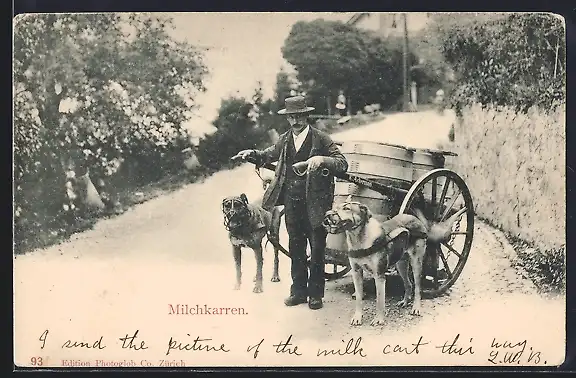 Milchkarren.
I send the picture of the milk cart this way.
93 Edition Photoglob Co. Zürich
L.W.B.